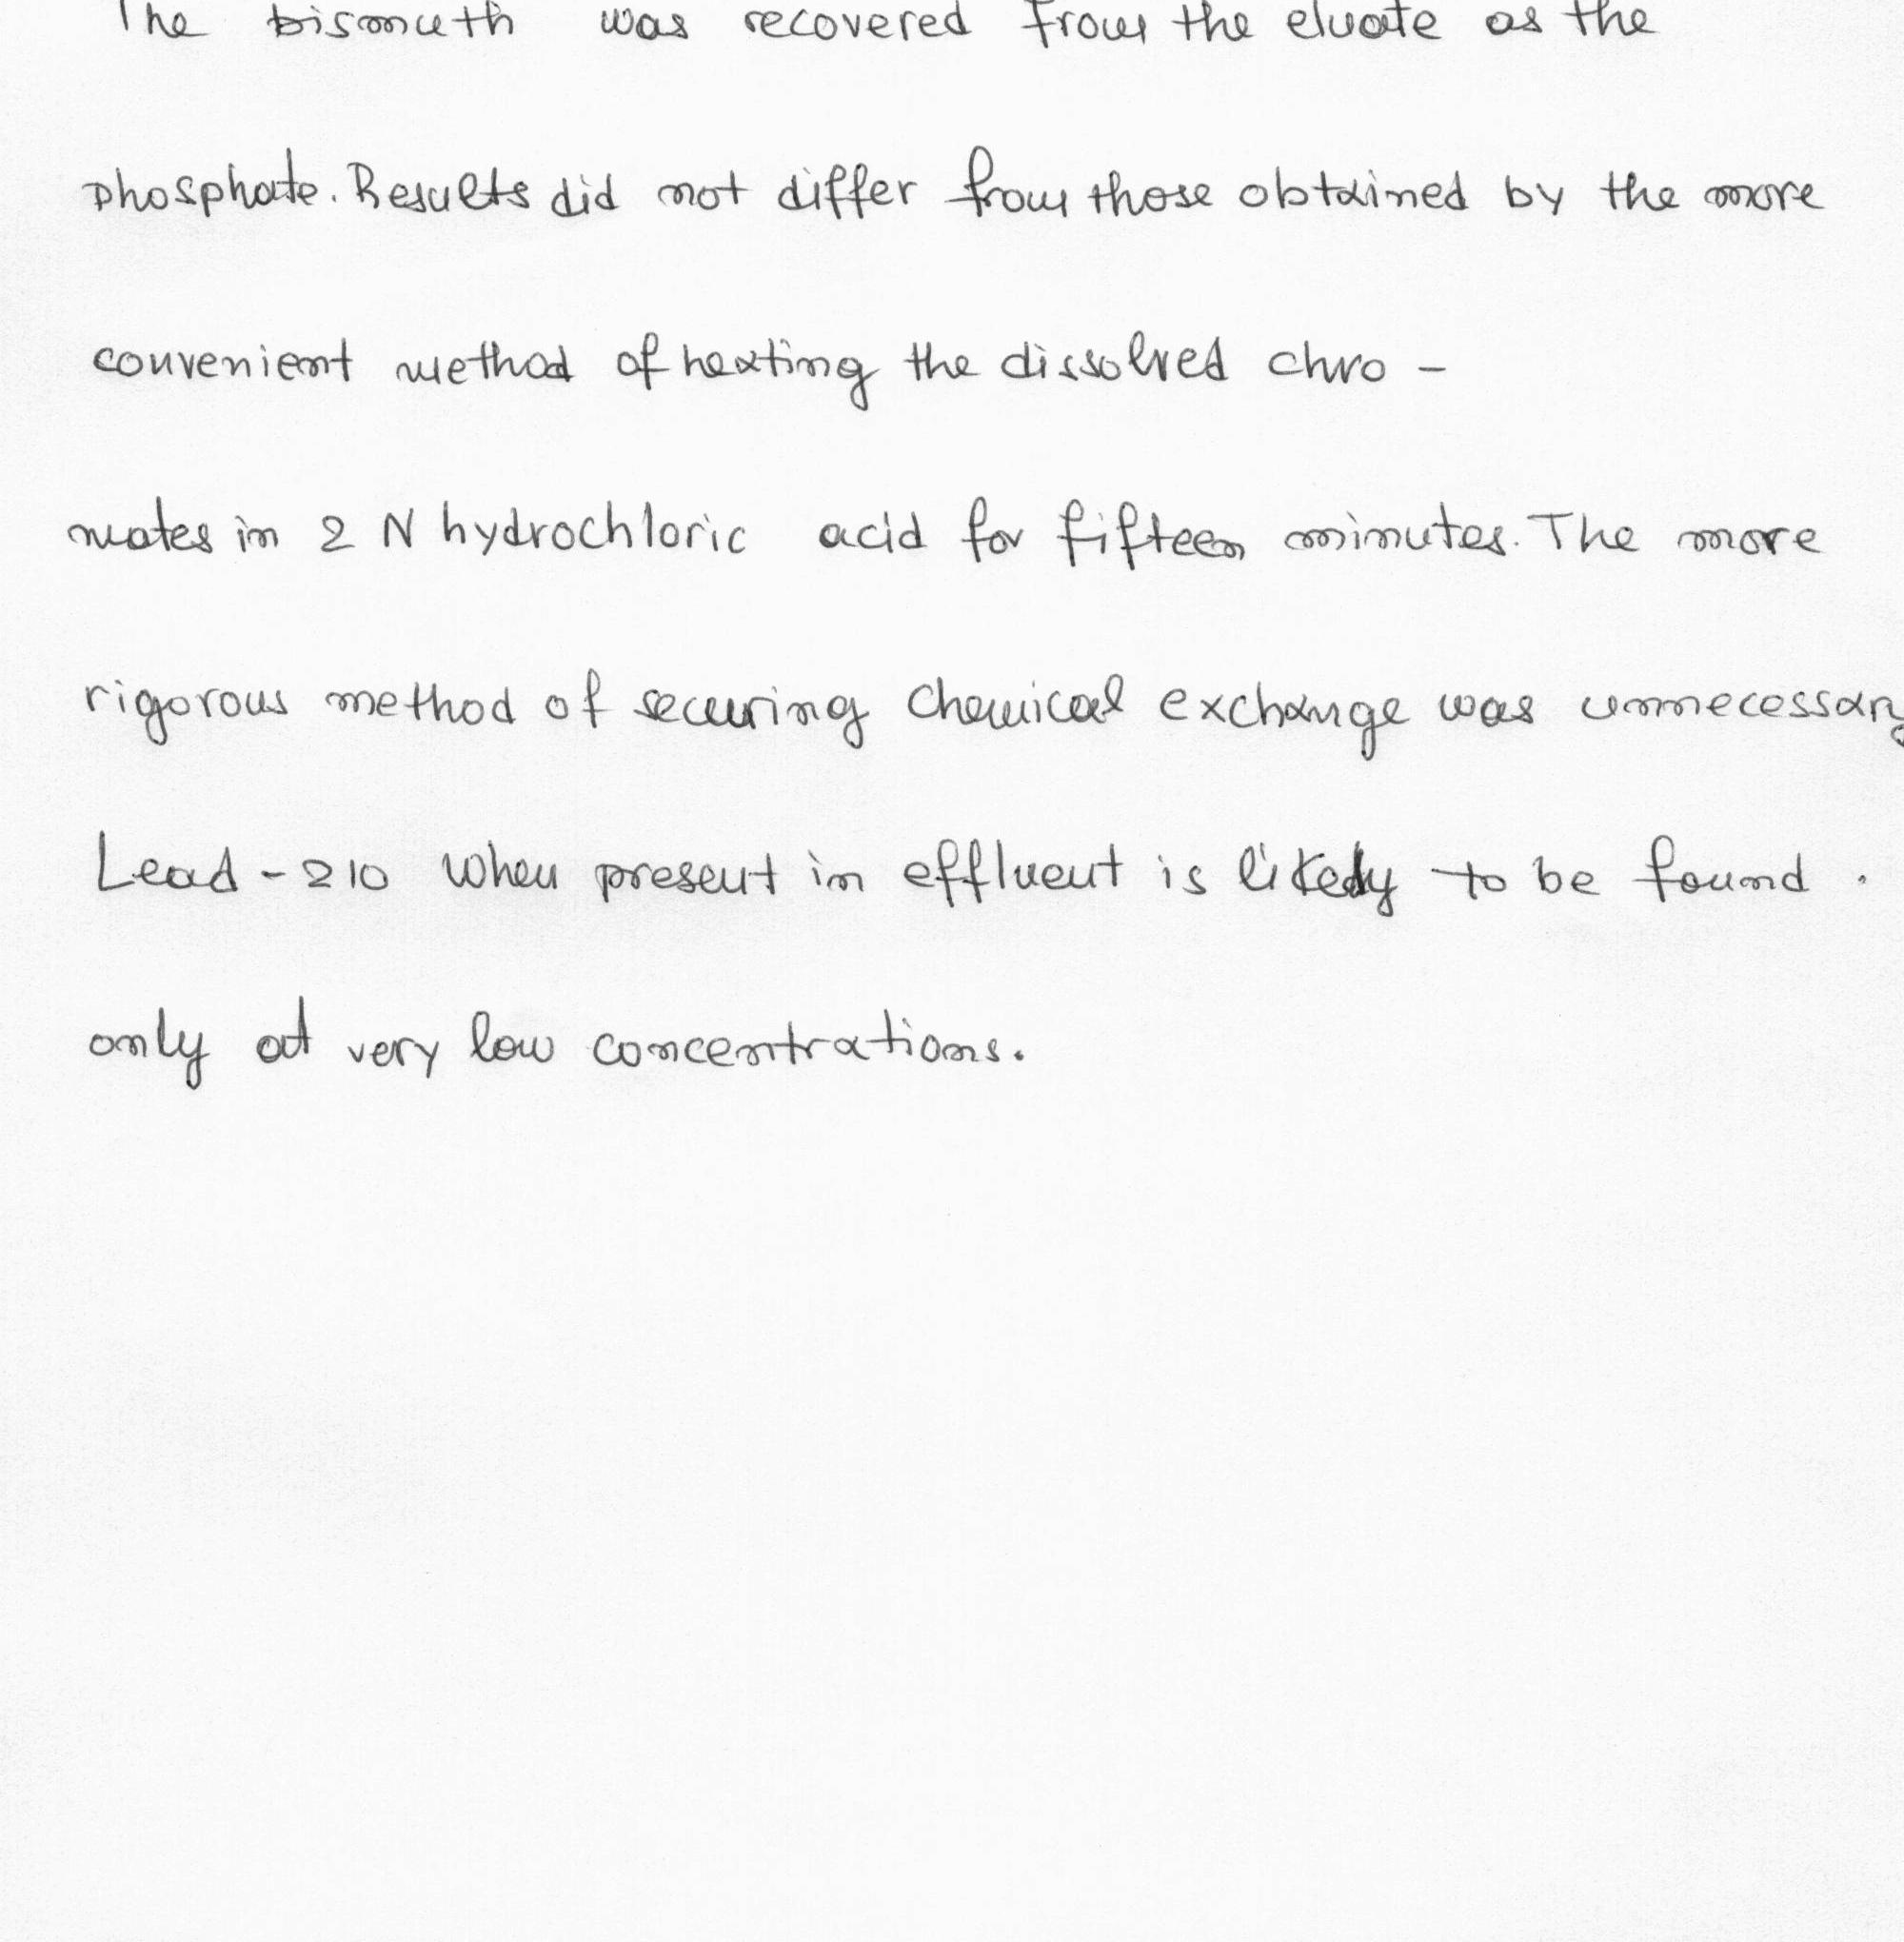 The bismuth was recovered from the eluate as the
phosphate. Results did not differ from those obtained by the more
convenient method of heating the dissolved chro -
mates in 2 N hydrochloric acid for fifteen minutes. The more
rigorous method of securing chemical exchange was unnecessary
Lead - 210 when present in effluent is likely to be found .
only at very low concentrations.